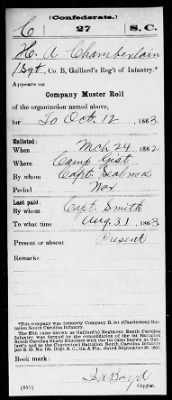 (Confederate.)
C 27 S.C.
H. A. Chamberlain
Sgt, Co. B, Gaillard's Reg't of Infantry.*
Appears on
Company Muster Roll
of the organization named above,
for To Oct. 12, 1863.
Enlisted:
When Mch 24, 1862.
Where Camp Gist
By whom Capt.
Period War
Last paid:
By whom Capt. Smith
To what time Aug. 31, 1863.
Present or absent Present
Remarks:
*This company was formerly Company B, 1st (Charleston) Battalion South Carolina Infantry.
The 27th (also known as Gaillard's) Regiment South Carolina Infantry was formed by the consolidation of the 1st Battalion South Carolina
Book mark:
(641)
Copyist.